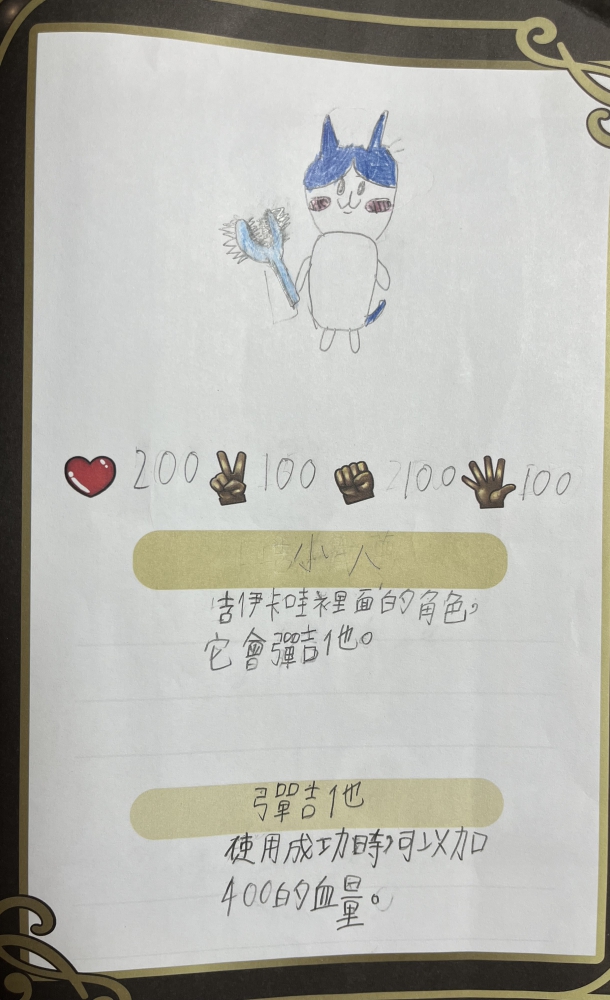 200 100 100 100
小人
吉伊卡哇裡面的角色，
它會彈吉他。
彈吉他
使用成功時，可以加
400的血量。